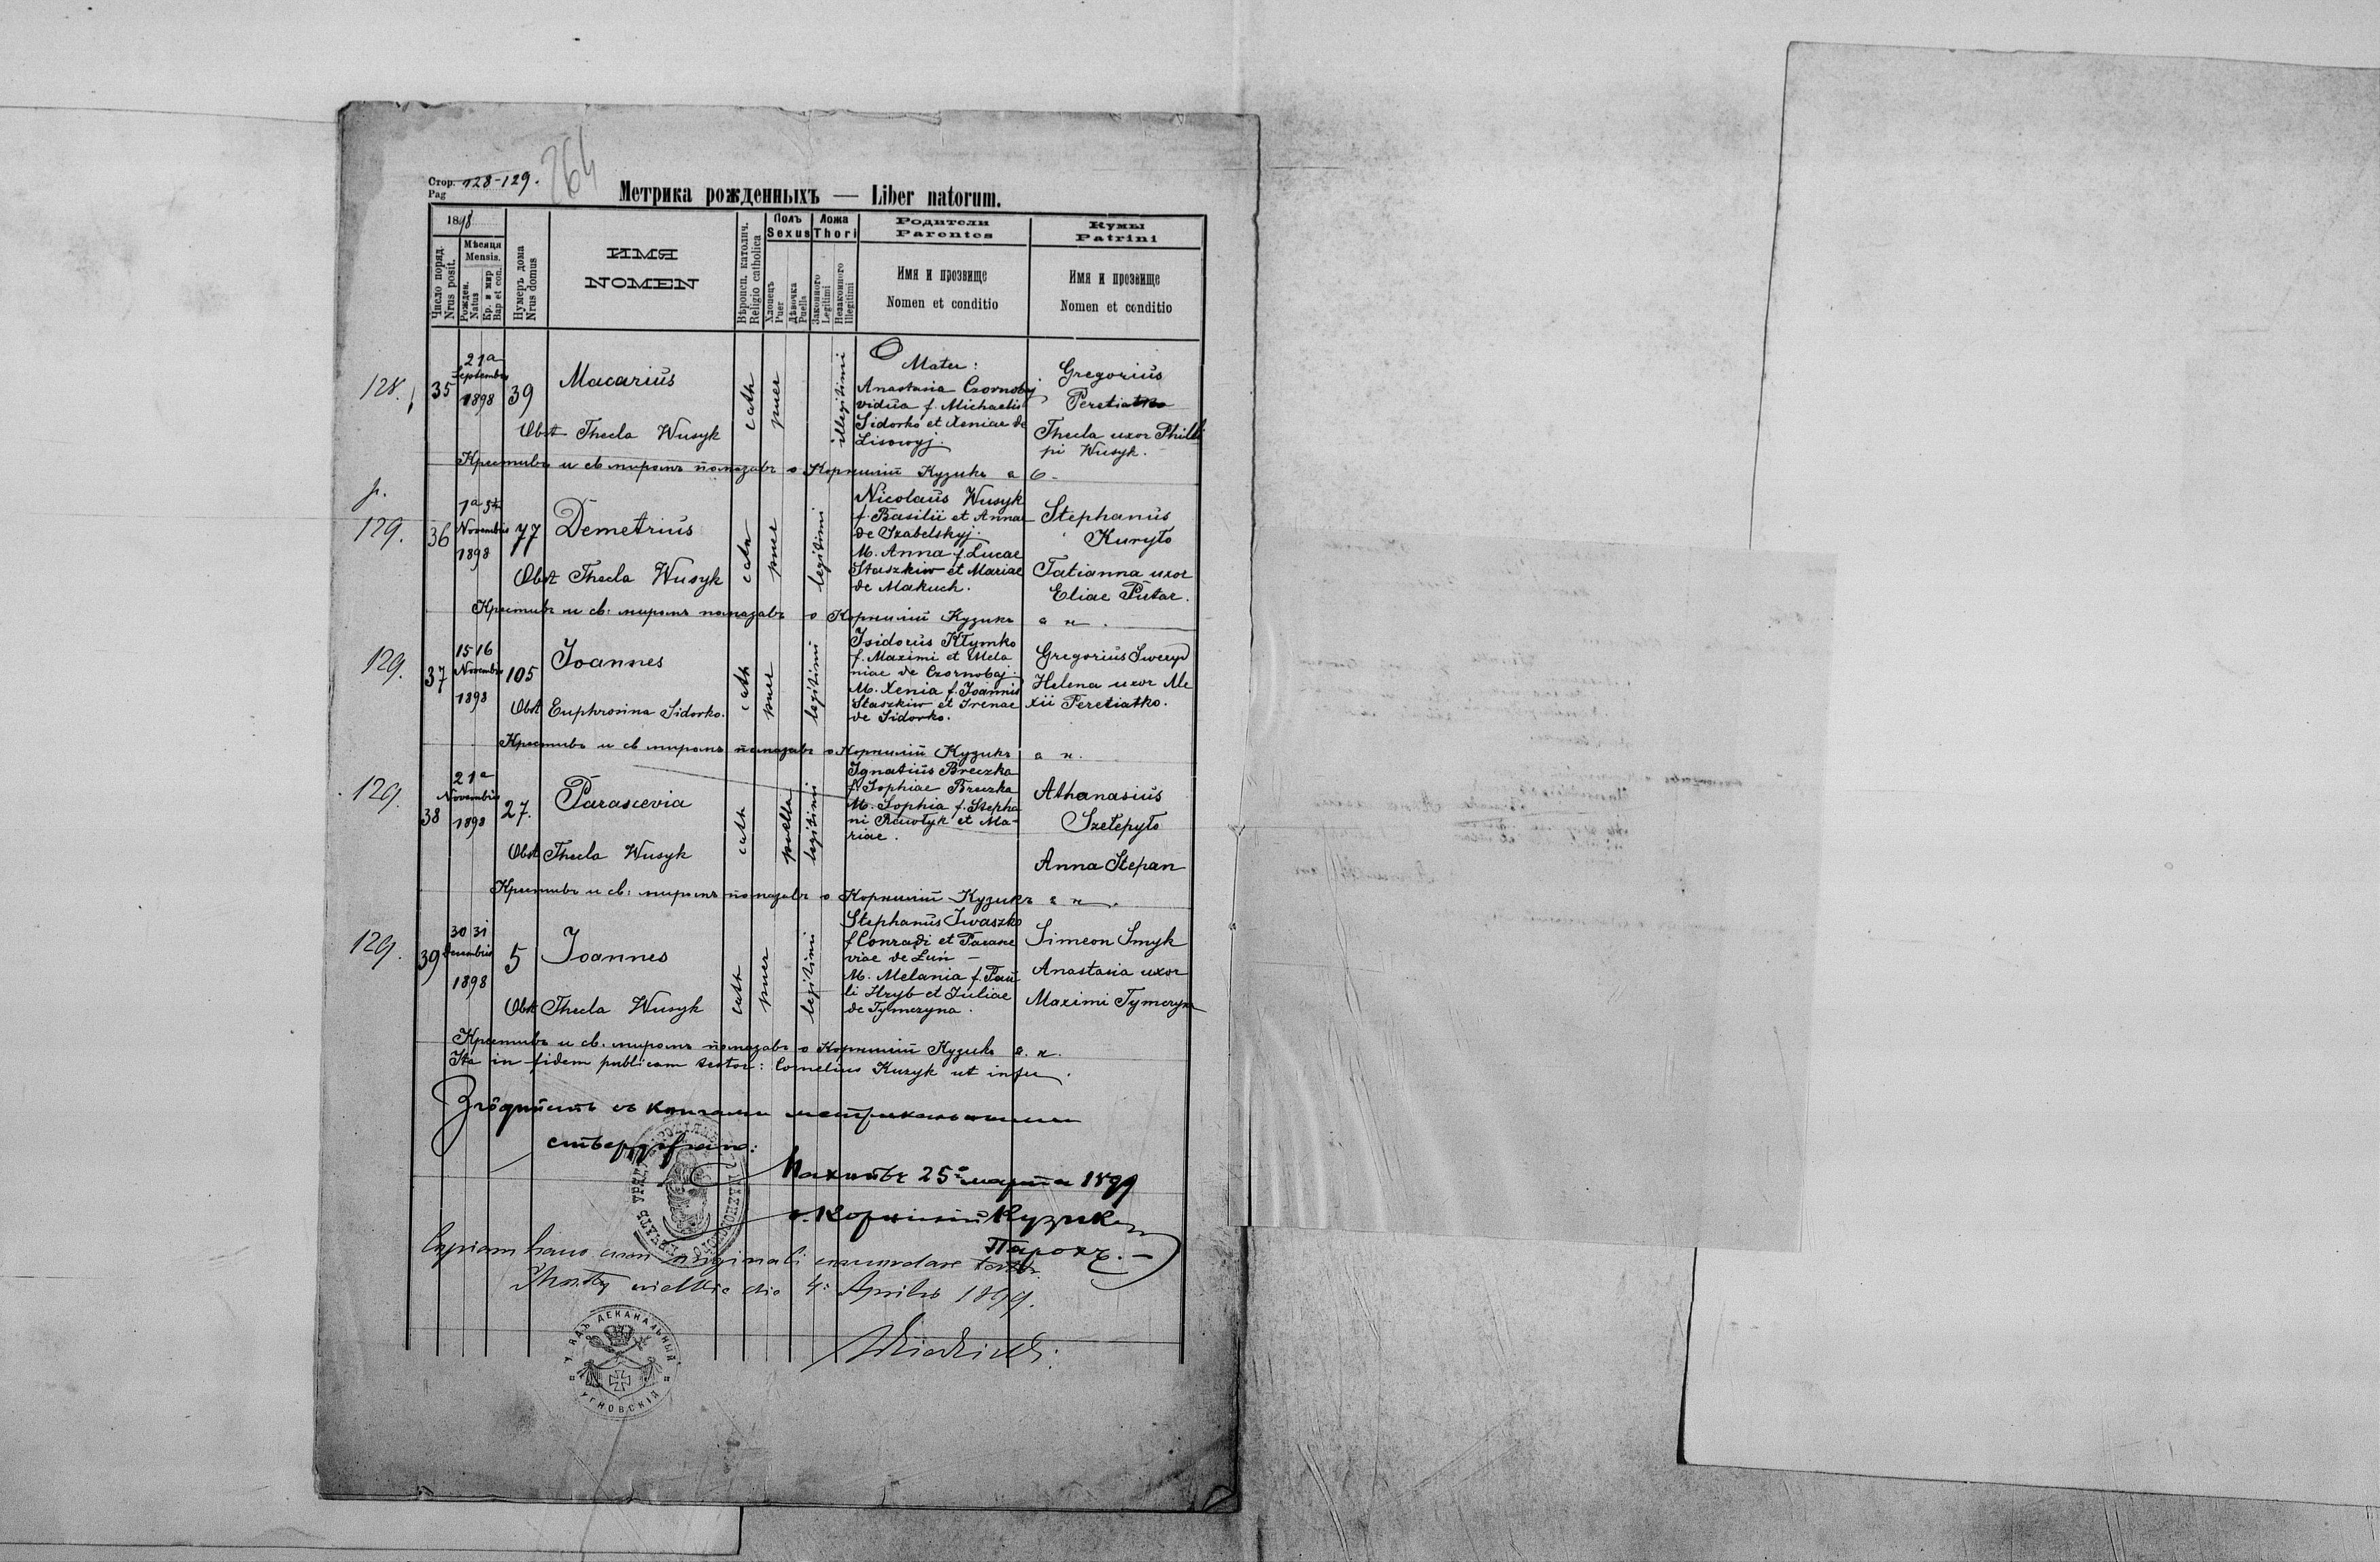 Стор. 128-129. 264
Pag
Метрика рожденныхъ — Liber natorum.
1898
Число поряд.
Nrus posit.
Мѣсяця
Mensis.
Рожден.
Natus
Кр. и мир
Bap et con.
Нумеръ дома
Nrus domus
ИМЯ
NOMEN
Вѣроисп. католич.
Religio catholica
Полъ
Sexus
Хлопецъ
Puer
Дѣвочка
Puella
Ложа
Thori
Законного
Legitimi
Незаконного
Illegitimi
Родители
Parentes
Имя и прозвище
Nomen et conditio
Кумы
Patrini
Имя и прозвище
Nomen et conditio
128.
35
21a
Septembris
1898
39
Macarius
Obst Thecla Wusyk
cath
puer
illegitimi
Mater:
Anastasia Czornobaj
vidua f. Michaelis
Sidorko et Xeniae de
Lisowyj.
Gregorius
Peretiatko
Thecla uxor Philli
pi Wusyk.
Крестивъ и св миромъ помазавъ о Корнилій Кузикъ
p.
129.
36
Novembris
1898
77
Demetrius
Obst Thecla Wusyk
cath
puer
legitimi
Nicolaus Wusyk
f. Basilii et Annae
de Szabelskyj.
M. Anna f. Lucae
Staszkiw et Mariae
de Makuch.
Stephanus
Kuryło
Tatianna uxor
Eliae Putar.
Крестивъ и св. миромъ помазавъ о Корнилій Кузикъ
129.
37
15 16
Novembris
1898
105
Joannes
Obst Euphrosina Sidorko.
cath
puer
legitimi
Isidorus Kłymko
f. Maximi et Mela
niae de Czornobaj.
M. Xenia f. Joannis
Staszkiw et Irenae
de Sidorko.
Gregorius Sweryd
Helena uxor Ale
xii Peretiatko.
Крестивъ и св миромъ помазавъ о Корнилій Кузикъ
129.
38
21a
Novembris
1898
27.
Parascevia
Obst Thecla Wusyk
cath
puella
legitimi
Ignatius Breczka
f. Sophiae Breczka
M. Sophia f. Stepha
ni Rawłyk et Ma-
riae.
Athanasius
Szełepyło
Anna Stepan
Крестивъ и св. миромъ помазавъ о Корнилій Кузикъ
129.
39
30 31
Decembris
1898
5
Joannes
Obst Thecla Wusyk
cath
puer
legitimi
Stephanus Iwaszko
f Conradi et Parasce
viae de Łuń -
M. Melania f. Pau
li Hryb et Juliae
de Tymczyna.
Simeon Smyk
Anastasia uxor
Maximi Tymczyna
Крестивъ и св. миромъ помазавъ о Корнилій Кузикъ
Ita in fidem publicam testor: Cornelius Kuzyk
Махнôвъ 25 марта 1899
о. Корнилій Кузикъ
Парохъ. -
Copiam hanc cum originali concordare testor
die 4. Aprilis 1899.
УРЯДЪ ДЕКАНАЛЬНЫЙ
УГНОВСКІЙ